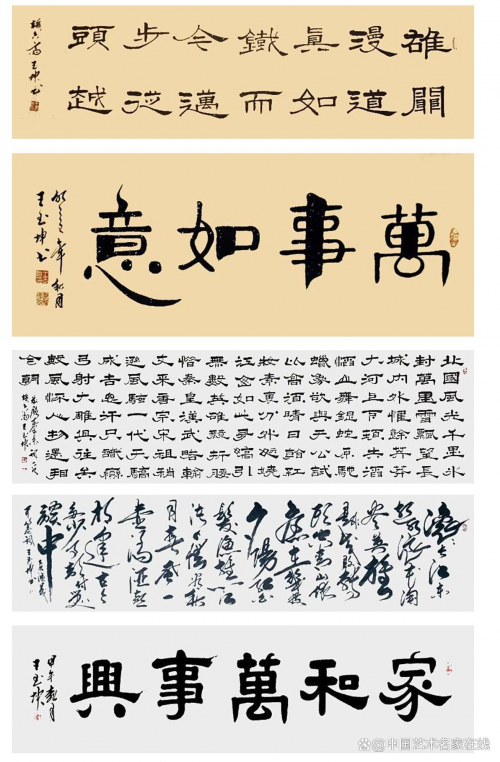 雄關
漫道
眞如
鐵而
今邁
步從
頭越
王玉坤书
萬事如意
癸卯年秋月
王玉坤书
北國風光千里冰
封萬里雪飄望長
城內外惟餘莽莽
大河上下頓失滔
滔山舞銀蛇原馳
蠟象欲與天公試
比高須晴日看紅
妝素裹分外妖嬈
江山如此多嬌引
無數英雄競折腰
惜秦皇漢武略輸
文采唐宗宋祖稍
遜風騷一代天驕
成吉思汗只識彎
弓射大雕俱往矣
數風流人物還看
今朝
滾滾長江東
逝水浪花淘
盡英雄
是非成敗轉
頭空青山依
舊在幾度
夕陽紅白
髮漁樵江
渚上慣看秋
月春風一
壺濁酒喜
相逢古今
多少事都付笑
談中
家和萬事興
王玉坤
中国艺术名家在线